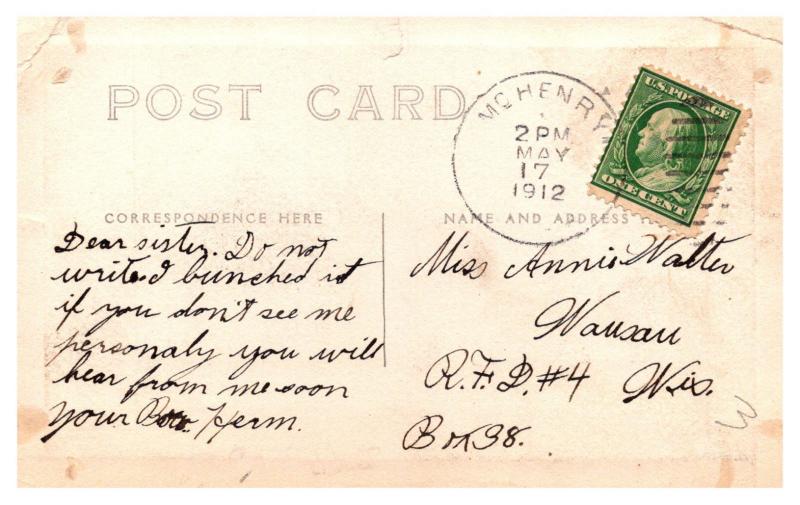 POST CARD
McHENRY
2 PM
MAY
17
1912
U.S. POSTAGE
ONE CENT
CORRESPONDENCE HERE
NAME AND ADDRESS
Dear sister. Do not
write I bunched it
if you don't see me
personaly you will
hear from me soon
your Bro. Herm.
Miss Annie Walter
Wausau
R.F.D. #4 Wis.
Box 98.
3